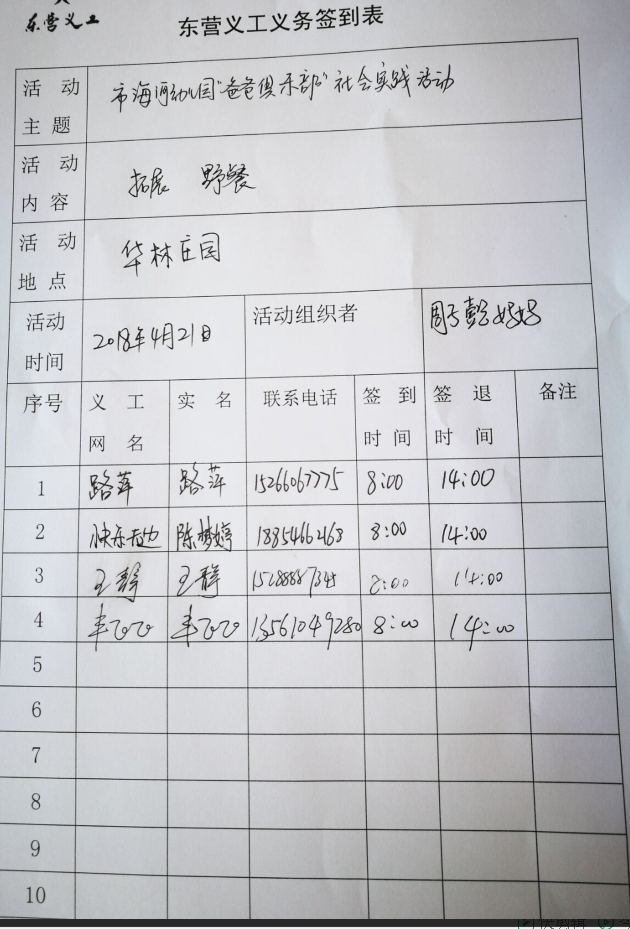 东营义工
东营义工义务签到表
活动主题 市海河幼儿园"爸爸俱乐部"社会实践活动
活动内容 拓展 野餐
活动地点 华林庄园
活动时间 2018年4月21日 活动组织者 周子懿妈妈
序号 义工网名 实名 联系电话 签到时间 签退时间 备注
1 路萍 路萍 15266067775 8:00 14:00
2 快乐无边 陈梦婷 18854662168 8:00 14:00
3 王静 王静 8:00 14:00
4 丰飞飞 丰飞飞 13561049280 8:00 14:00
5
6
7
8
9
10